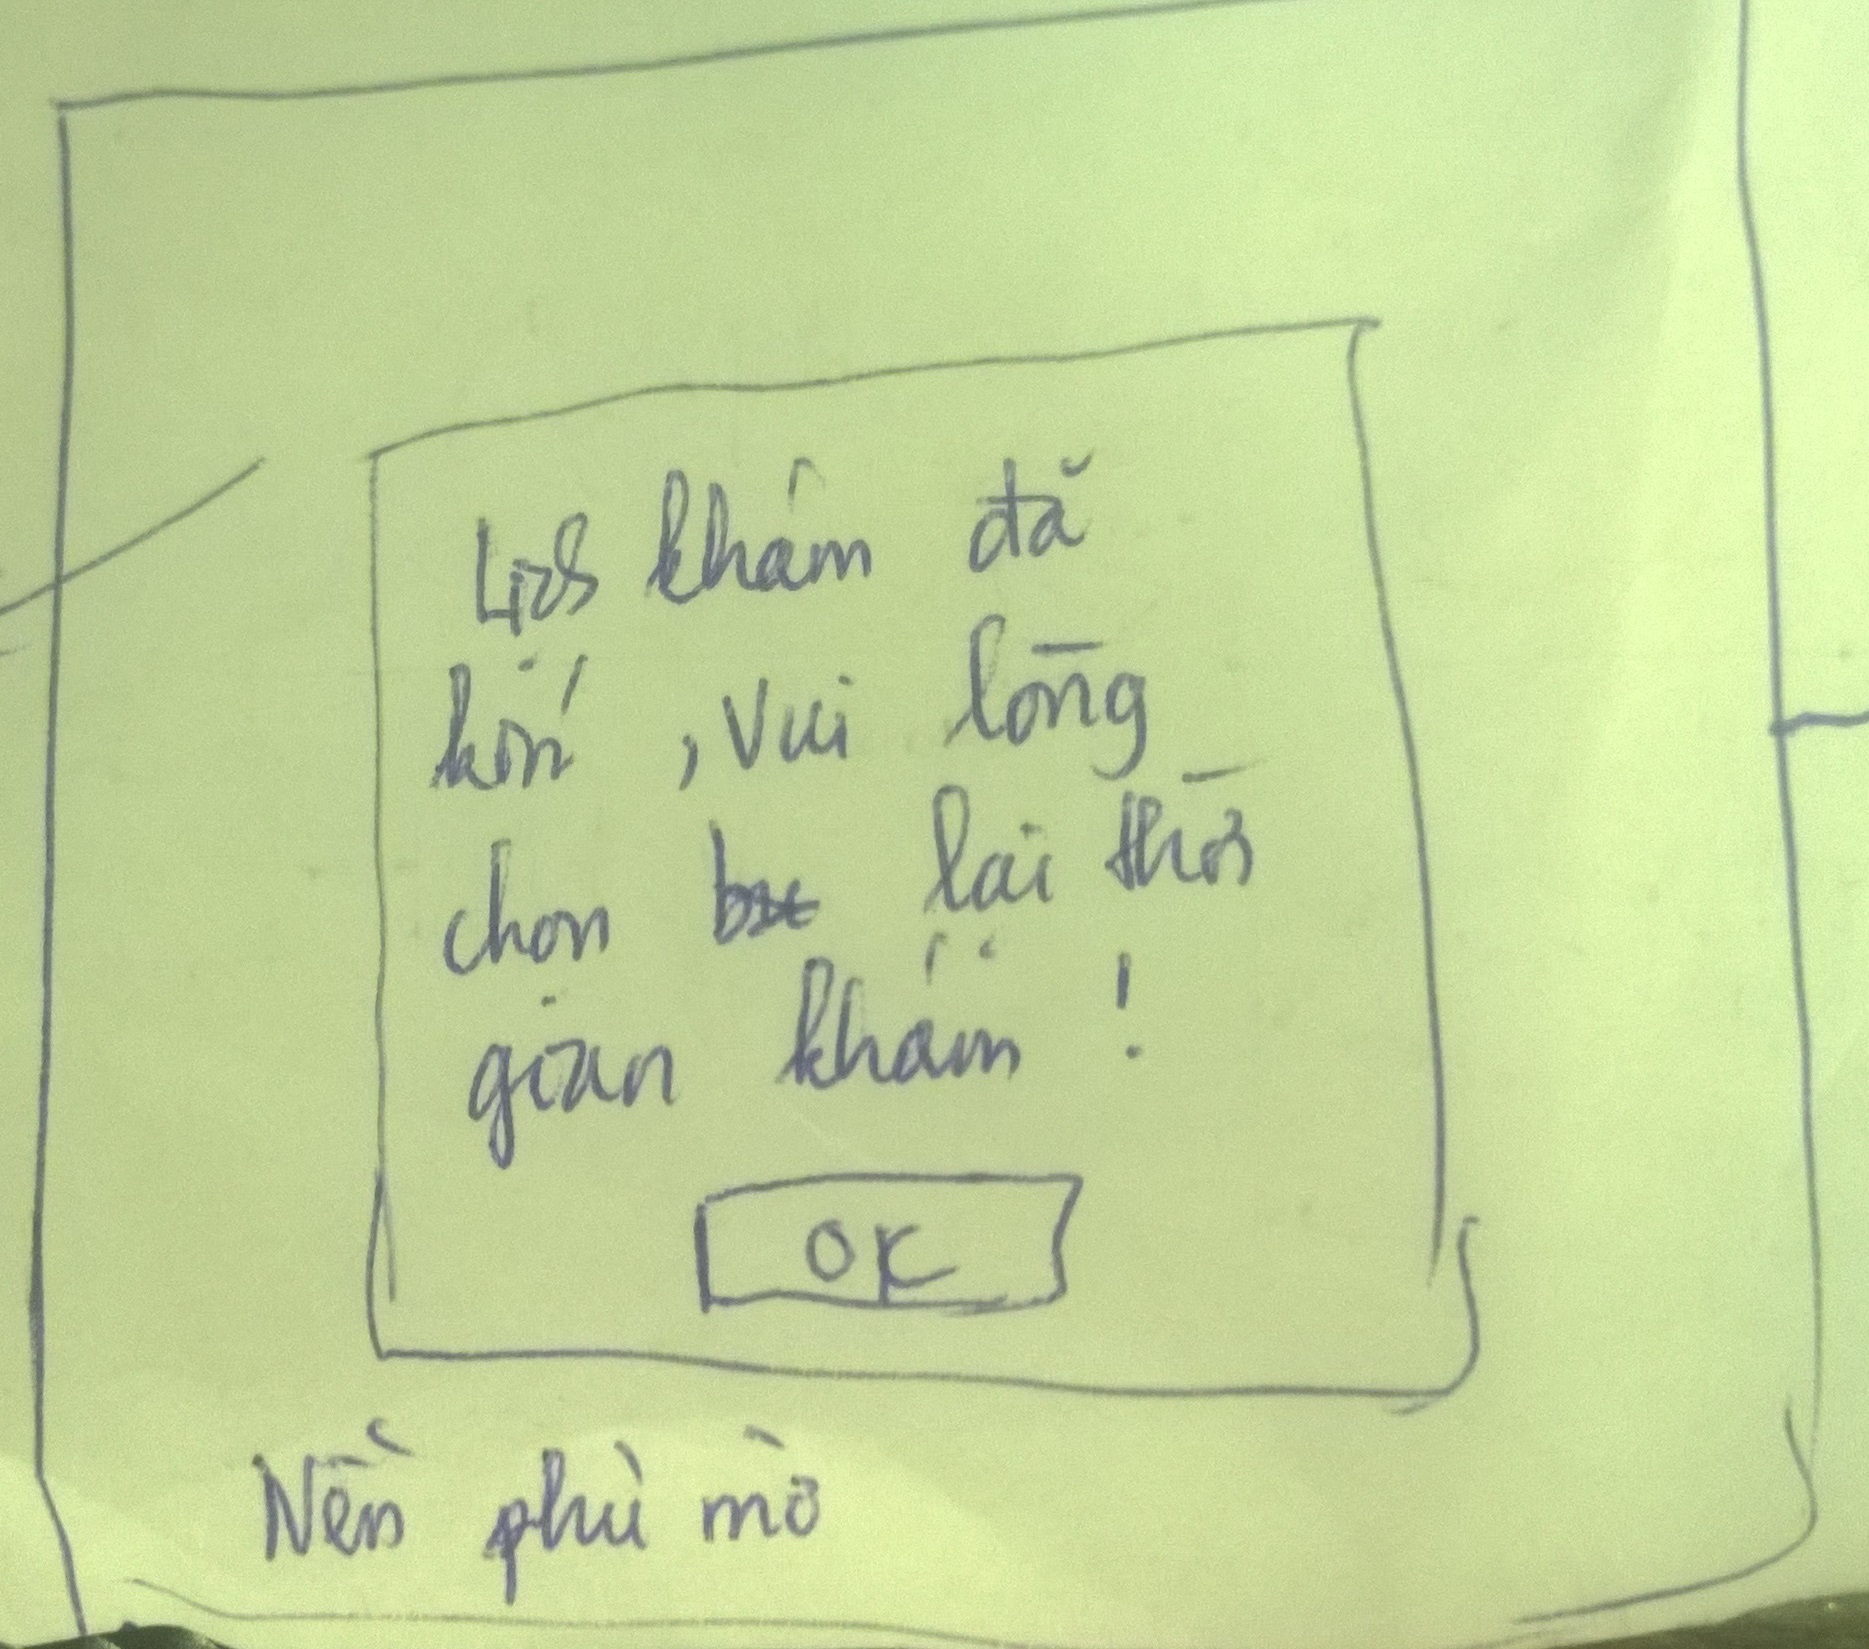 Lịch khám đã
kín, vui lòng
chọn lại thời
gian khám !
OK
Nền phủ mờ